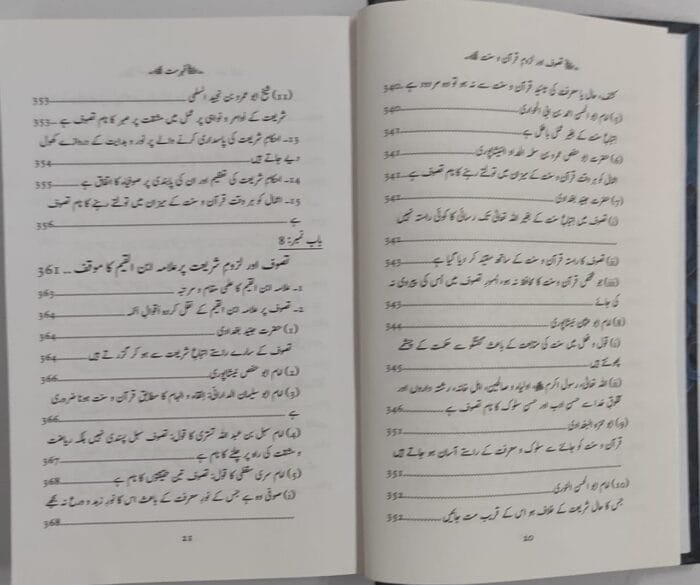 تصوف اور لزومِ قرآن و سنت
کشف، حال یا معرفت کی جیتیہ قرآن و سنت سے نہ ہو تو وہ مردود ہے 340
(5) امام ابو الحسن احمد بن ابی الحواری 340
اتباعِ سنت کے بغیر عمل باطل ہے 341
(6) حضرت ابو حفص عمرو بن سلمہ الحداد النیشاپوری 341
افعال کو ہر وقت قرآن و سنت کے میزان میں تولتے رہنے کا نام تصوف ہے 341
(7) حضرت جنید بغدادی 342
(i) تصوف میں اتباعِ سنت کے بغیر اللہ تعالیٰ تک رسائی کا کوئی راستہ نہیں
342
(ii) تصوف کا راستہ قرآن و سنت کے ساتھ مقید کر دیا گیا ہے 343
(iii) جو شخص قرآن و سنت کا محافظ نہ ہو، اُمورِ تصوف میں اس کی پیروی نہ
کی جائے 343
(8) امام ابو عثمان نیشاپوری 344
(i) قول و عمل میں سنت کی متابعت کے باعث گفتگو سے حکمت کے چشمے
پھوٹتے ہیں 345
(ii) اللہ تعالیٰ، رسول اکرم ﷺ، اولیاء و صالحین، اہل خانہ، رشتہ داروں اور
مخلوقِ خدا سے حسنِ ادب اور حسنِ سلوک کا نام تصوف ہے 346
(9) ابو حمزہ البغدادی 351
قرآن و سنت کو جاننے سے سلوک و معرفت کے راستے آسان ہو جاتے ہیں
351
(10) امام ابو الحسن النوری 352
جس کا حال شریعت کے خلاف ہو اس کے قریب مت جائیں 352
20
فہرست
(11) شیخ ابو عمرو بن نجید السلمی 353
شریعت کے اَوامر و نواہی پر عمل میں مشقت پر صبر کا نام تصوف ہے 353
13۔ احکامِ شریعت کی پاسداری کرنے والے پر نور و ہدایت کے دروازے کھول
دیے جاتے ہیں 354
14۔ احکامِ شریعت کی تعظیم اور ان کی پابندی پر صوفیاء کا اتفاق ہے 355
15۔ افعال کو ہر وقت قرآن و سنت کے میزان میں تولتے رہنے کا نام تصوف
ہے 356
باب نمبر: 8
تصوف اور لزومِ شریعت پر علامہ ابن القیم کا موقف 361
1۔ علامہ ابن القیم کا علمی مقام و مرتبہ 363
2۔ تصوف پر علامہ ابن القیم کے نقل کردہ اقوالِ ائمہ 364
(1) حضرت جنید بغدادی 364
تصوف کے سارے راستے اتباعِ شریعت سے ہو کر گزرتے ہیں 364
(2) امام ابو حفص نیشاپوری 366
(3) امام ابو سلیمان الدارانی: اِلقاء و الہام کا مطابق قرآن و سنت ہونا ضروری
ہے 366
(4) امام سہل بن عبد اللہ تستری کا قول: تصوف سہل پسندی نہیں بلکہ ریاضت
و مشقت کی راہ پر چلنے کا نام ہے 367
(5) امام سری سقطی کا قول: تصوف تین حقیقتوں کا نام ہے 368
(i) صوفی وہ ہے جس کے نورِ معرفت کے باعث اس کا نورِ زہد و ورع نہ بجھے
368
21